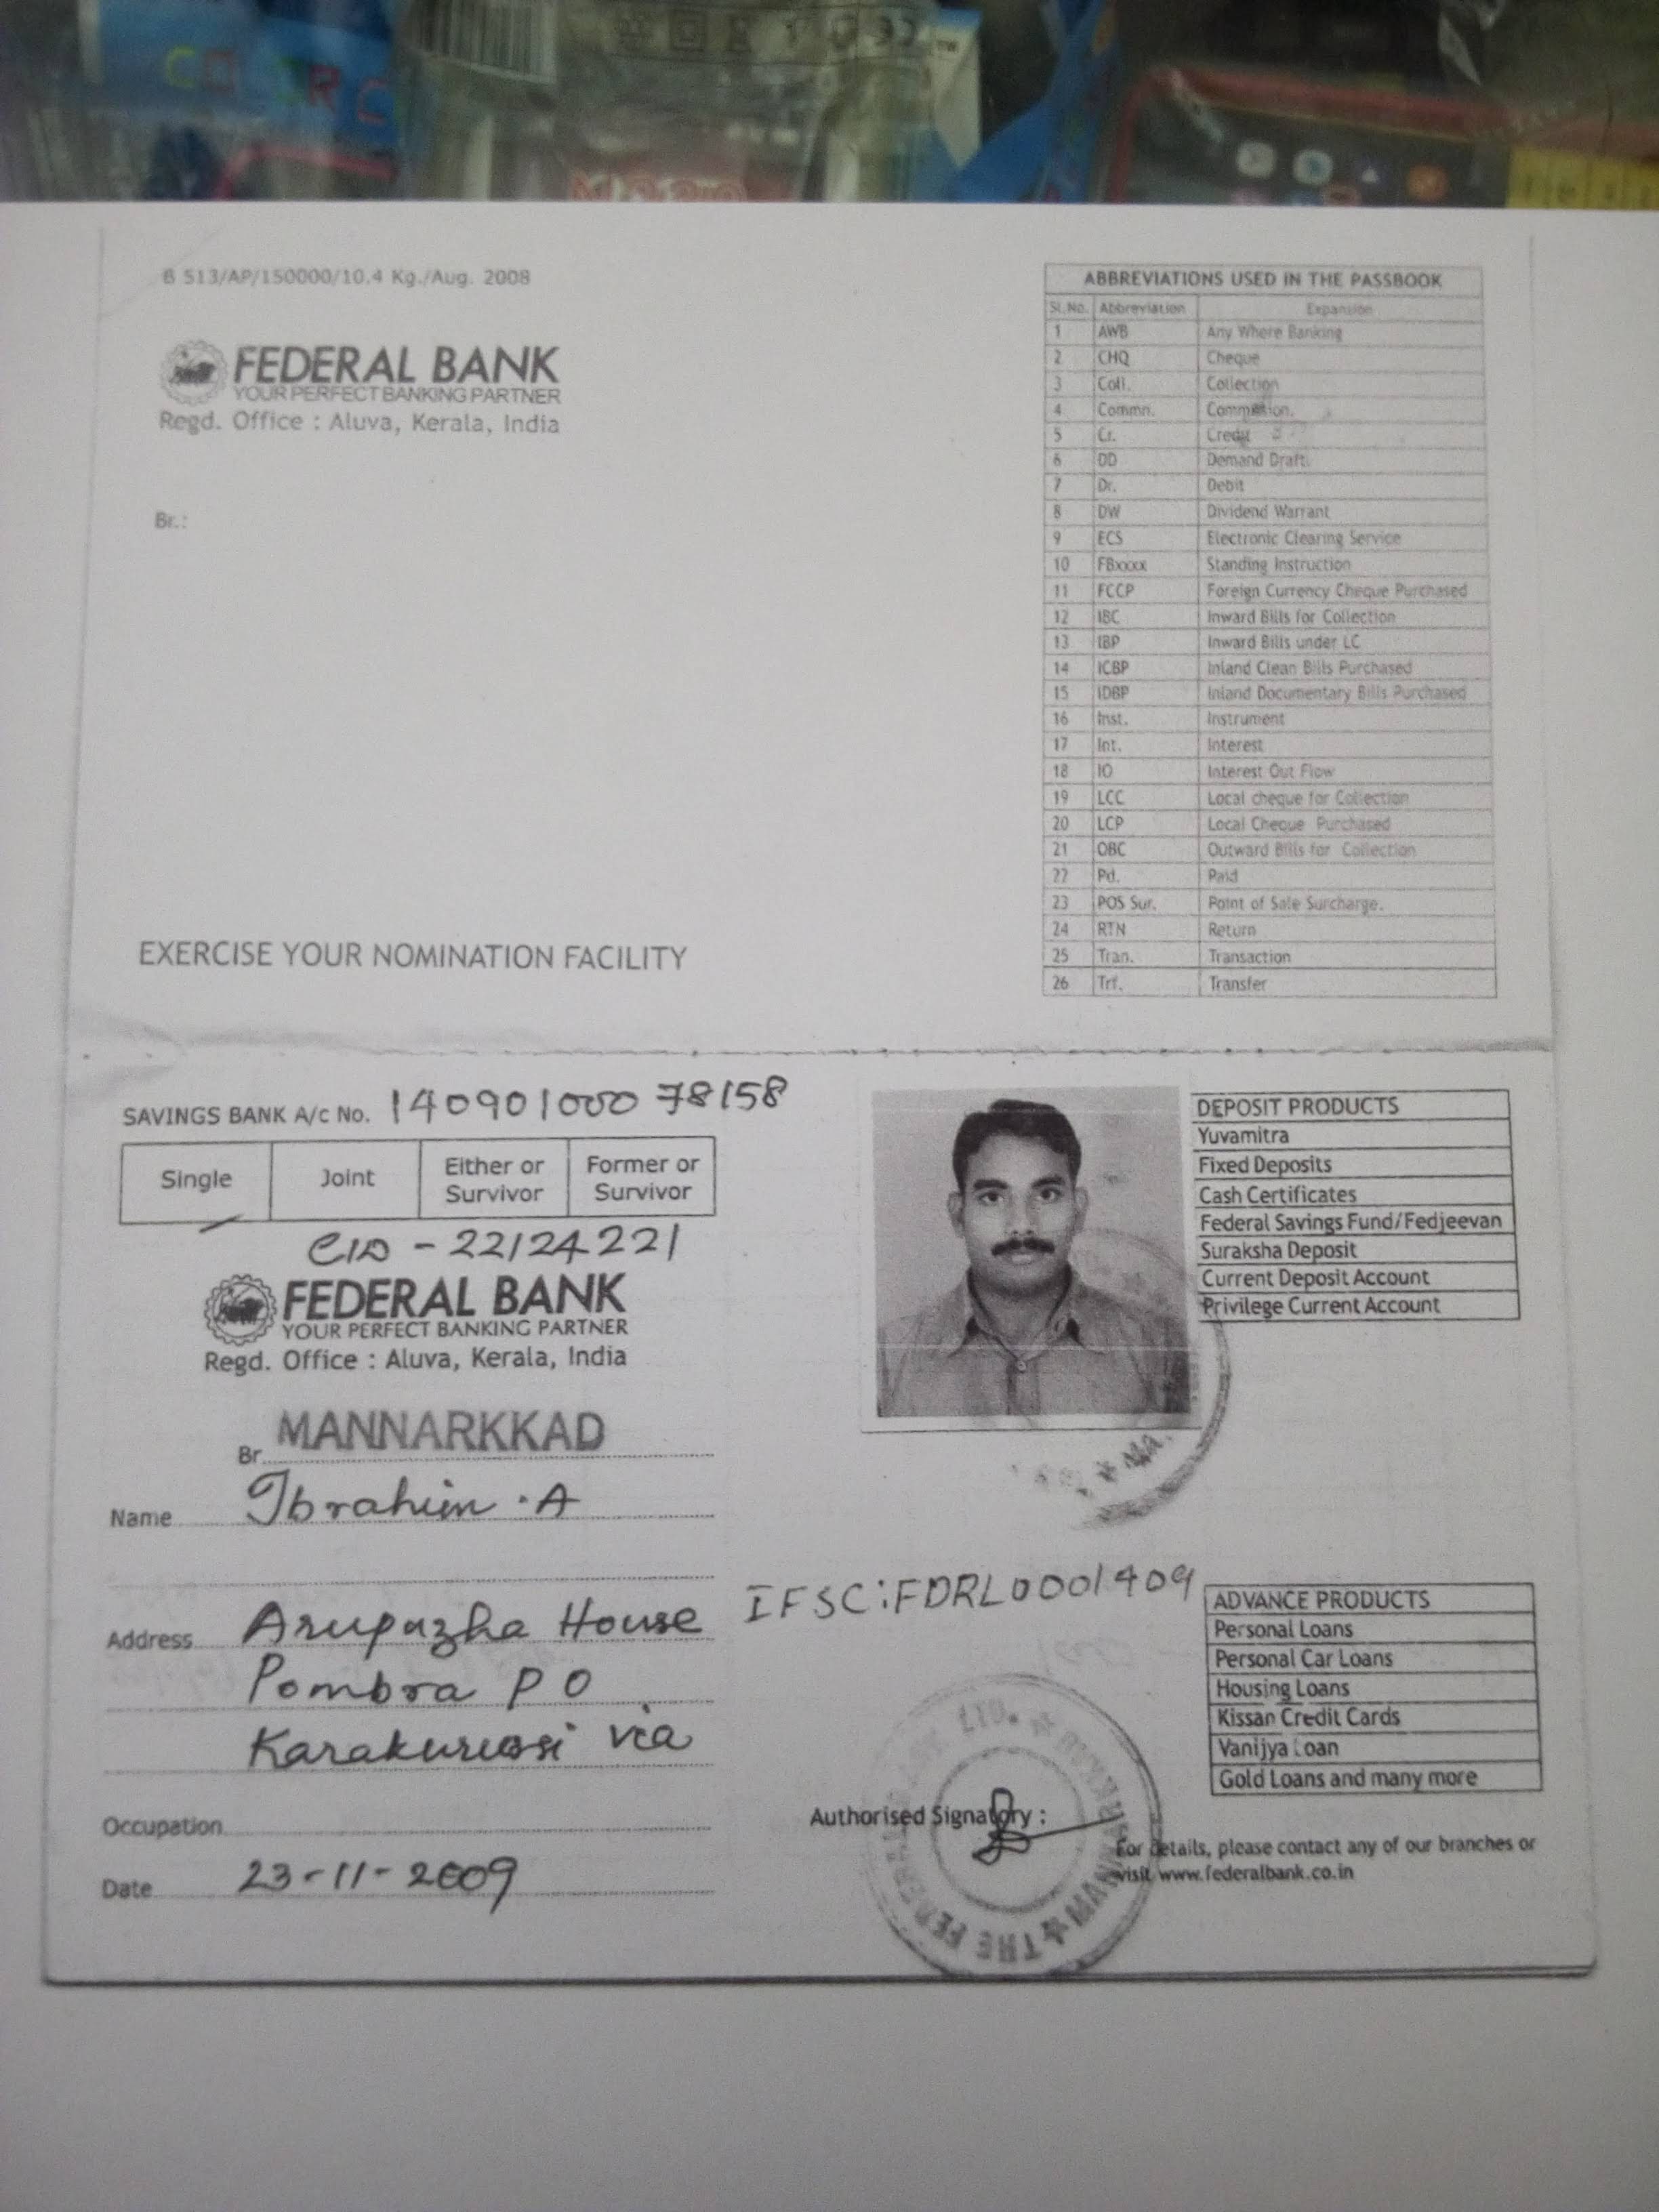 COLOR
B 513/AP/150000/10.4 Kg./Aug. 2008
FEDERAL BANK
YOUR PERFECT BANKING PARTNER
Regd. Office : Aluva, Kerala, India
Br.:
EXERCISE YOUR NOMINATION FACILITY
ABBREVIATIONS USED IN THE PASSBOOK
Sl.No. Abbreviation Expansion
1 AWB Any Where Banking
2 CHQ Cheque
3 Coll. Collection
4 Commn. Commission.
5 Cr. Credit
6 DD Demand Draft.
7 Dr. Debit
8 DW Dividend Warrant
9 ECS Electronic Clearing Service
10 FBxxxx Standing Instruction
11 FCCP Foreign Currency Cheque Purchased
12 IBC Inward Bills for Collection
13 IBP Inward Bills under LC
14 ICBP Inland Clean Bills Purchased
15 IDBP Inland Documentary Bills Purchased
16 Inst. Instrument
17 Int. Interest
18 IO Interest Out Flow
19 LCC Local cheque for Collection
20 LCP Local Cheque Purchased
21 OBC Outward Bills for Collection
22 Pd. Paid
23 POS Sur. Point of Sale Surcharge.
24 RTN Return
25 Tran. Transaction
26 Trf. Transfer
SAVINGS BANK A/c No. 140901000 78158
Single Joint Either or Survivor Former or Survivor
CID - 22124221
FEDERAL BANK
YOUR PERFECT BANKING PARTNER
Regd. Office : Aluva, Kerala, India
Br. MANNARKKAD
Name Ibrahim . A
Address Arupazha House
Pombra P O
Karakurussi via
Occupation
Date 23-11-2009
DEPOSIT PRODUCTS
Yuvamitra
Fixed Deposits
Cash Certificates
Federal Savings Fund/Fedjeevan
Suraksha Deposit
Current Deposit Account
Privilege Current Account
IFSC:FDRL0001409
ADVANCE PRODUCTS
Personal Loans
Personal Car Loans
Housing Loans
Kissan Credit Cards
Vanijya Loan
Gold Loans and many more
Authorised Signatory :
For details, please contact any of our branches or
visit www.federalbank.co.in